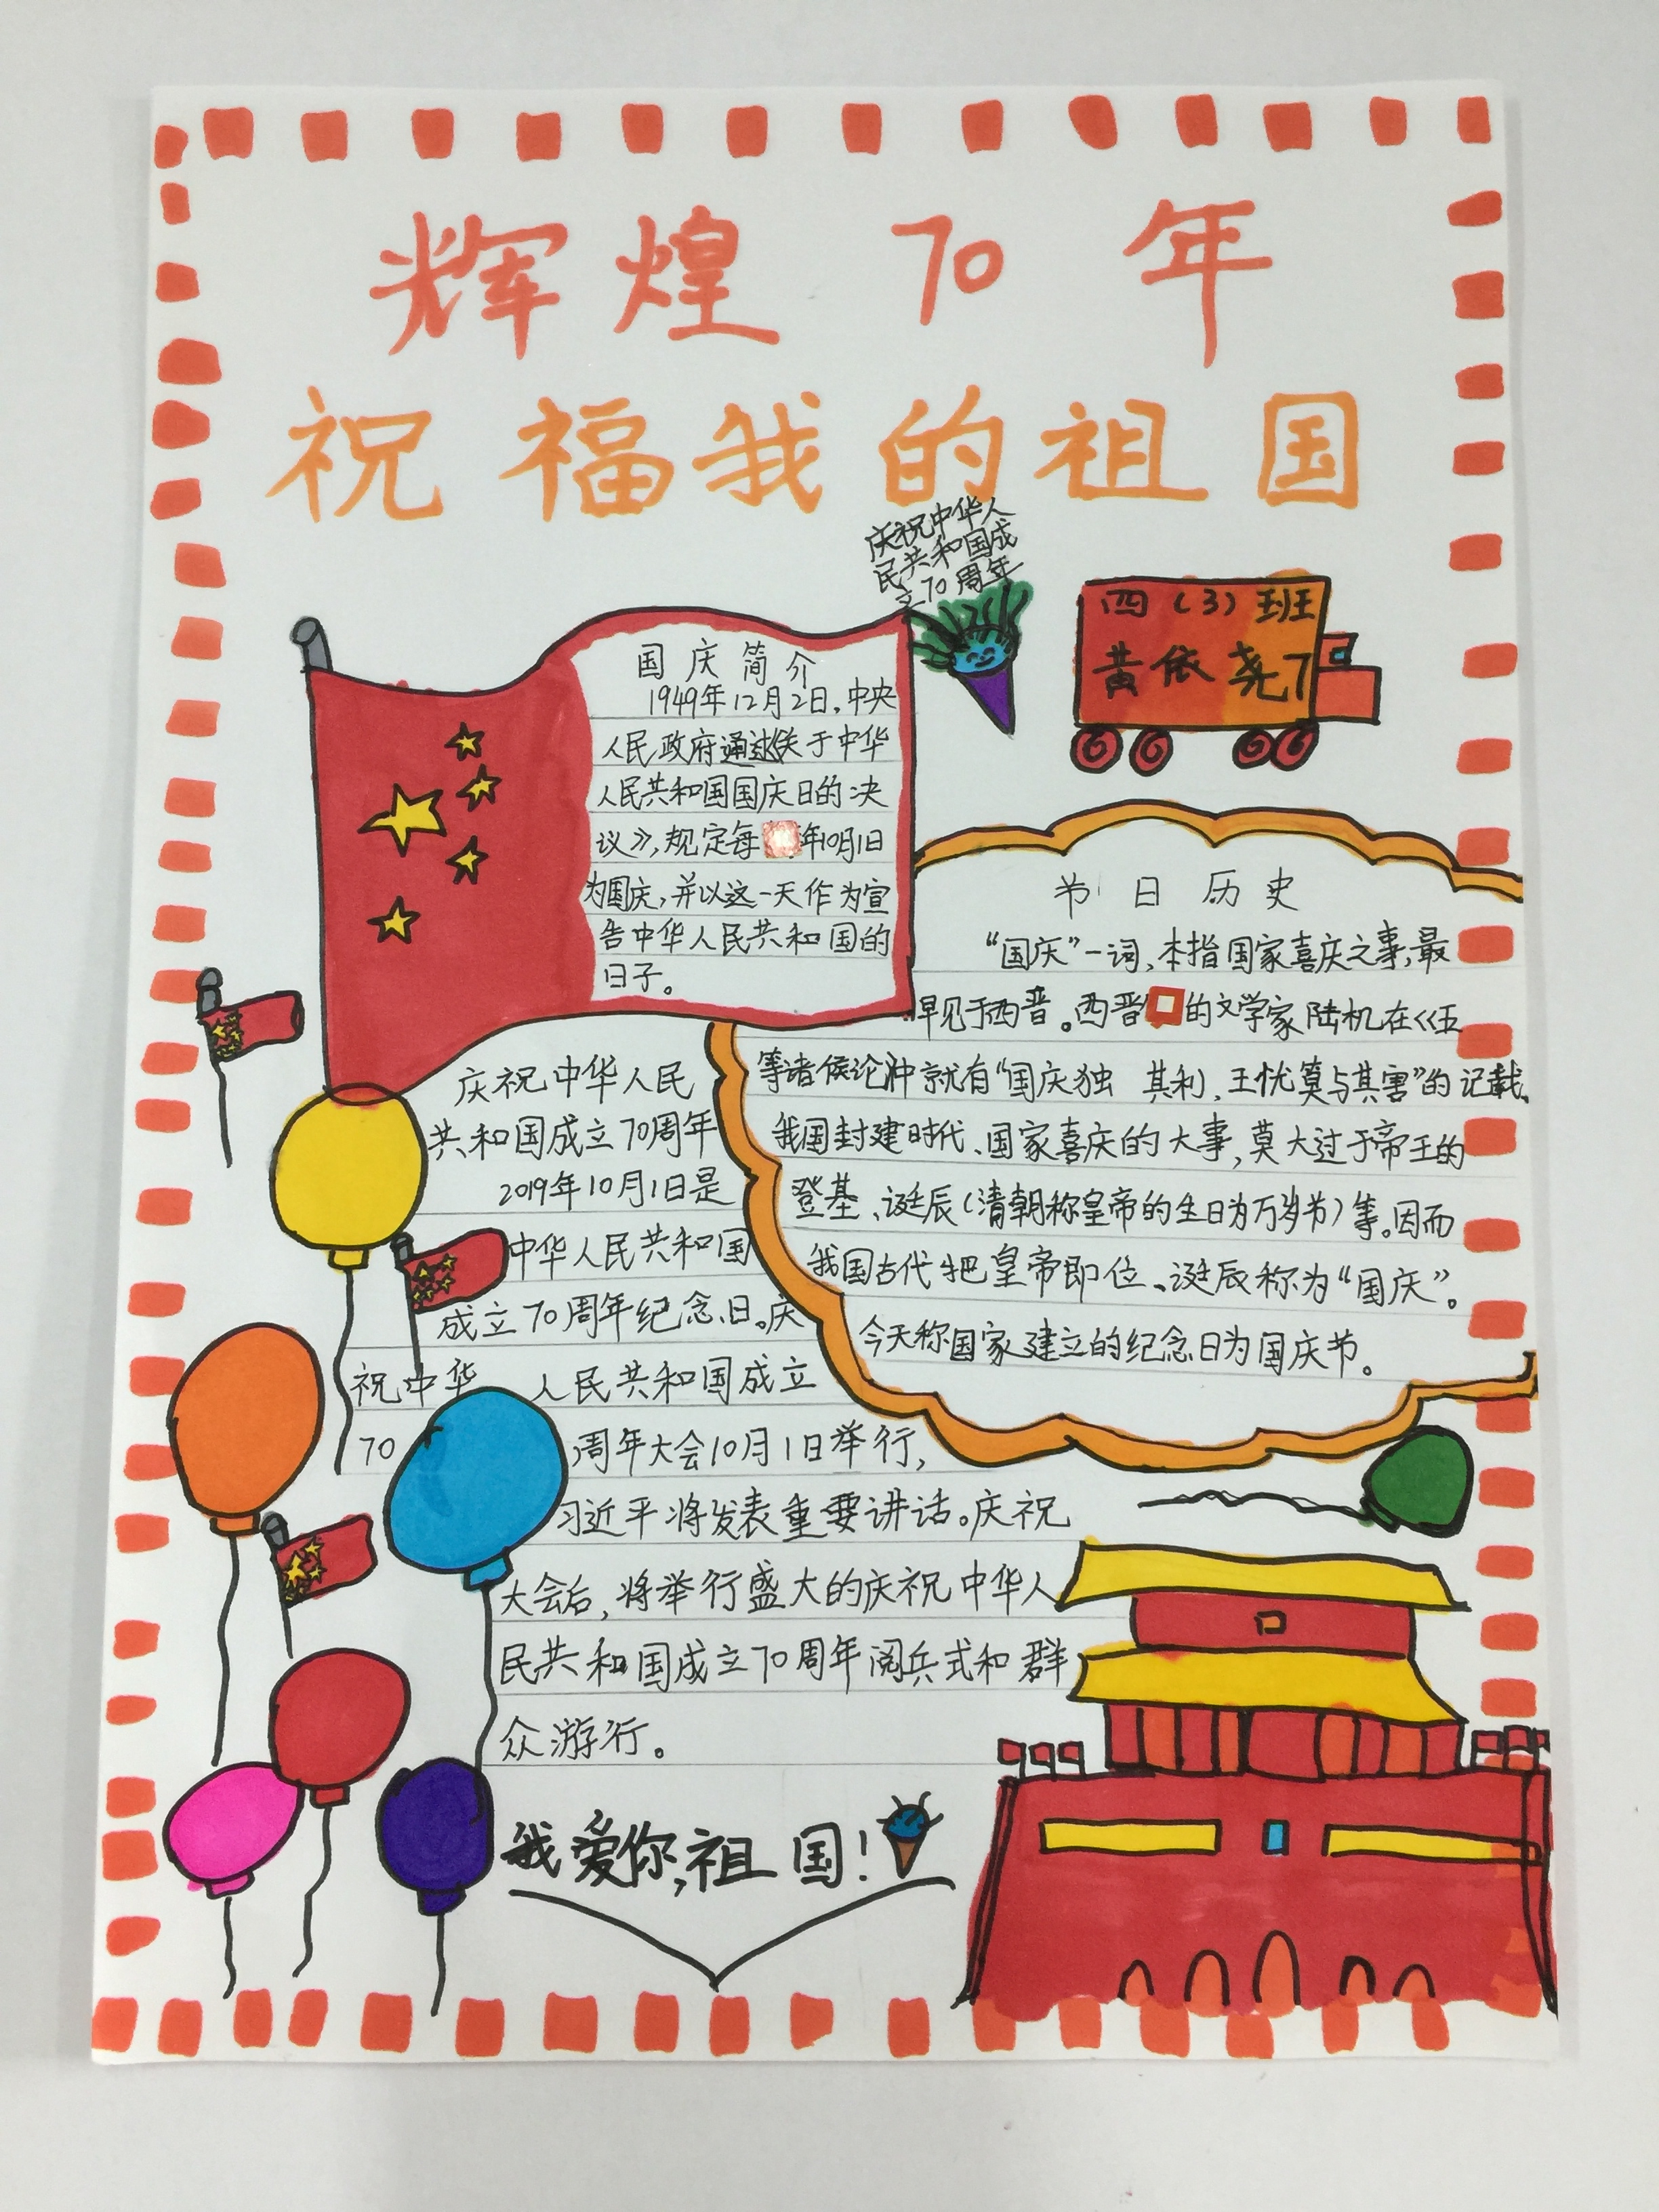 辉煌 70 年
祝福我的祖国
庆祝中华人
民共和国成
立70周年
四(3)班
黄依尧7
国庆简介
1949年12月2日,中央
人民政府通过《关于中华
人民共和国国庆日的决
议》,规定每年10月1日
为国庆,并以这一天作为宣
告中华人民共和国的
日子。
节日历史
“国庆”一词,本指国家喜庆之事,最
早见于西晋。西晋的文学家陆机在《五
等诸侯论》中就有“国庆独 其利,王忧莫与其害”的记载、
我国封建时代、国家喜庆的大事,莫大过于帝王的
登基、诞辰(清朝称皇帝的生日为万岁节)等。因而
我国古代把皇帝即位、诞辰称为“国庆”。
今天称国家建立的纪念日为国庆节。
庆祝中华人民
共和国成立70周年
2019年10月1日是
中华人民共和国
成立70周年纪念日。庆
祝中华 人民共和国成立
70 周年大会10月1日举行,
习近平将发表重要讲话。庆祝
大会后,将举行盛大的庆祝中华人
民共和国成立70周年阅兵式和群
众游行。
我爱你,祖国!